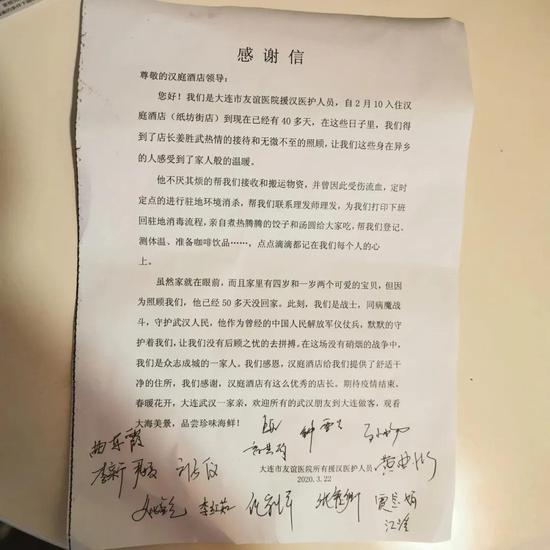 感谢信
尊敬的汉庭酒店领导：
您好！我们是大连市友谊医院援汉医护人员，自2月10入住汉
庭酒店（纸坊街店）到现在已经有40多天，在这些日子里，我们得
到了店长姜胜武热情的接待和无微不至的照顾，让我们这些身在异乡
的人感受到了家人般的温暖。
他不厌其烦的帮我们接收和搬运物资，并曾因此受伤流血，定时
定点的进行驻地环境消杀，帮我们联系理发师理发，为我们打印下班
回驻地消毒流程，亲自煮热腾腾的饺子和汤圆给大家吃，帮我们登记、
测体温、准备咖啡饮品……，点点滴滴都记在我们每个人的心
上。
虽然家就在眼前，而且家里有四岁和一岁两个可爱的宝贝，但因
为照顾我们，他已经50多天没回家。此刻，我们是战士，同病魔战
斗，守护武汉人民，他作为曾经的中国人民解放军仪仗兵，默默的守
护着我们，让我们没有后顾之忧的去拼搏。在这场没有硝烟的战争中，
我们是众志成城的一家人。我们感恩，汉庭酒店给我们提供了舒适干
净的住所，我们感谢，汉庭酒店有这么优秀的店长。期待疫情结束，
春暖花开，大连武汉一家亲，欢迎所有的武汉朋友到大连做客，观看
大海美景，品尝珍味海鲜！
大连市友谊医院所有援汉医护人员
2020.3.22